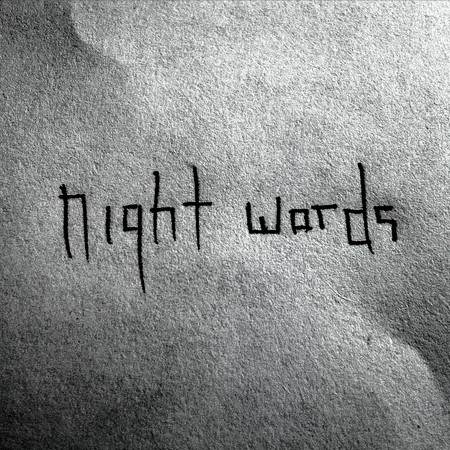 night words